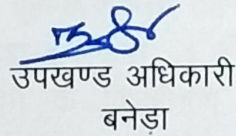 उपखण्ड अधिकारी
बनेड़ा